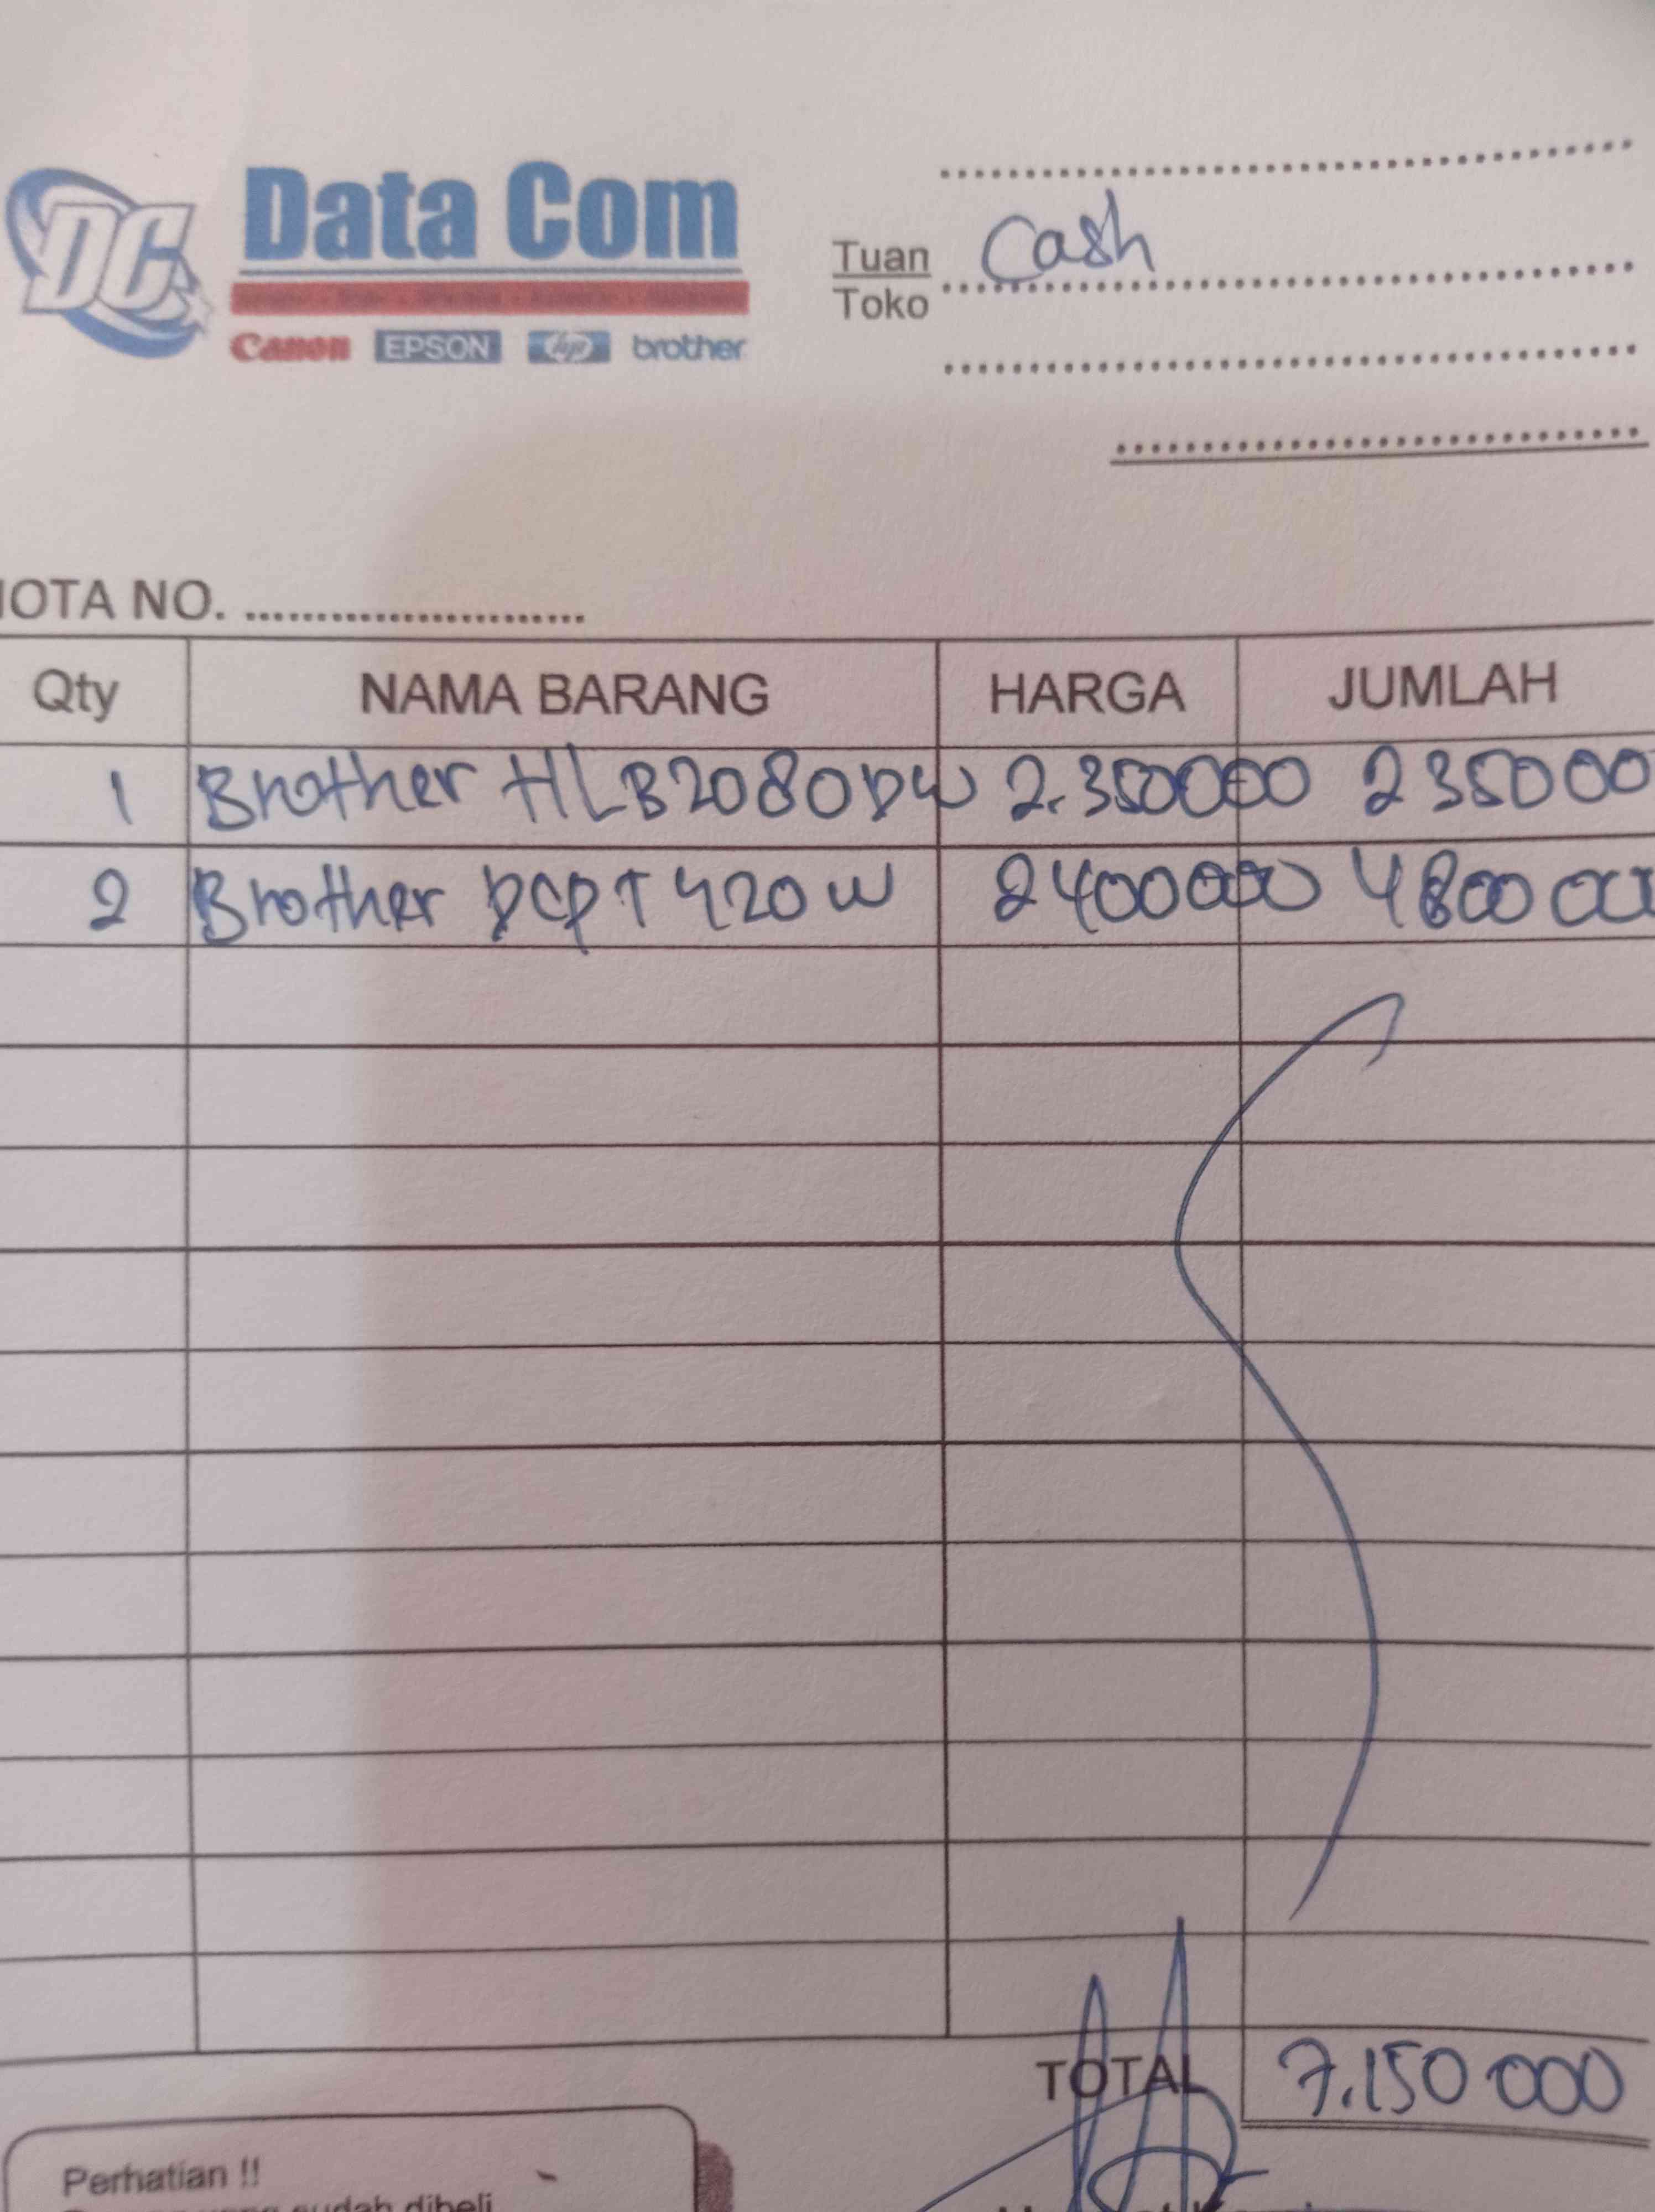 DC
Data Com
Canon EPSON hp brother
Tuan Cash
Toko
OTA NO.
Qty NAMA BARANG HARGA JUMLAH
1 Brother HLB2080DW 2.350000 235000
2 Brother DCPT420W 2400000 480000
TOTAL 7.150 000
Perhatian !!
sudah dibeli